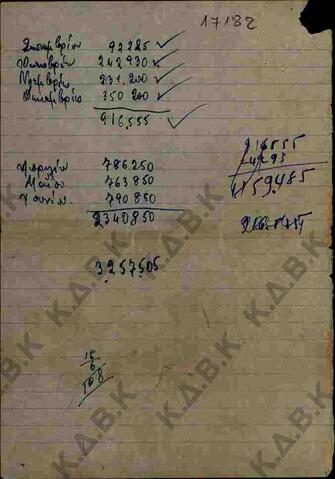 17182
Σεπτεμβρίου 92225
Οκτωβρίου 242930
Νοεμβρίου 231.200
Δεκεμβρίου 350200
916.555
Απριλίου 786.250
Μαΐου 763850
Ιουνίου 790850
2340850
916555
159.485
3.257.505
108
Κ.Δ.Β.Κ
Κ.Δ.Β.Κ
Κ.Δ.Β.Κ